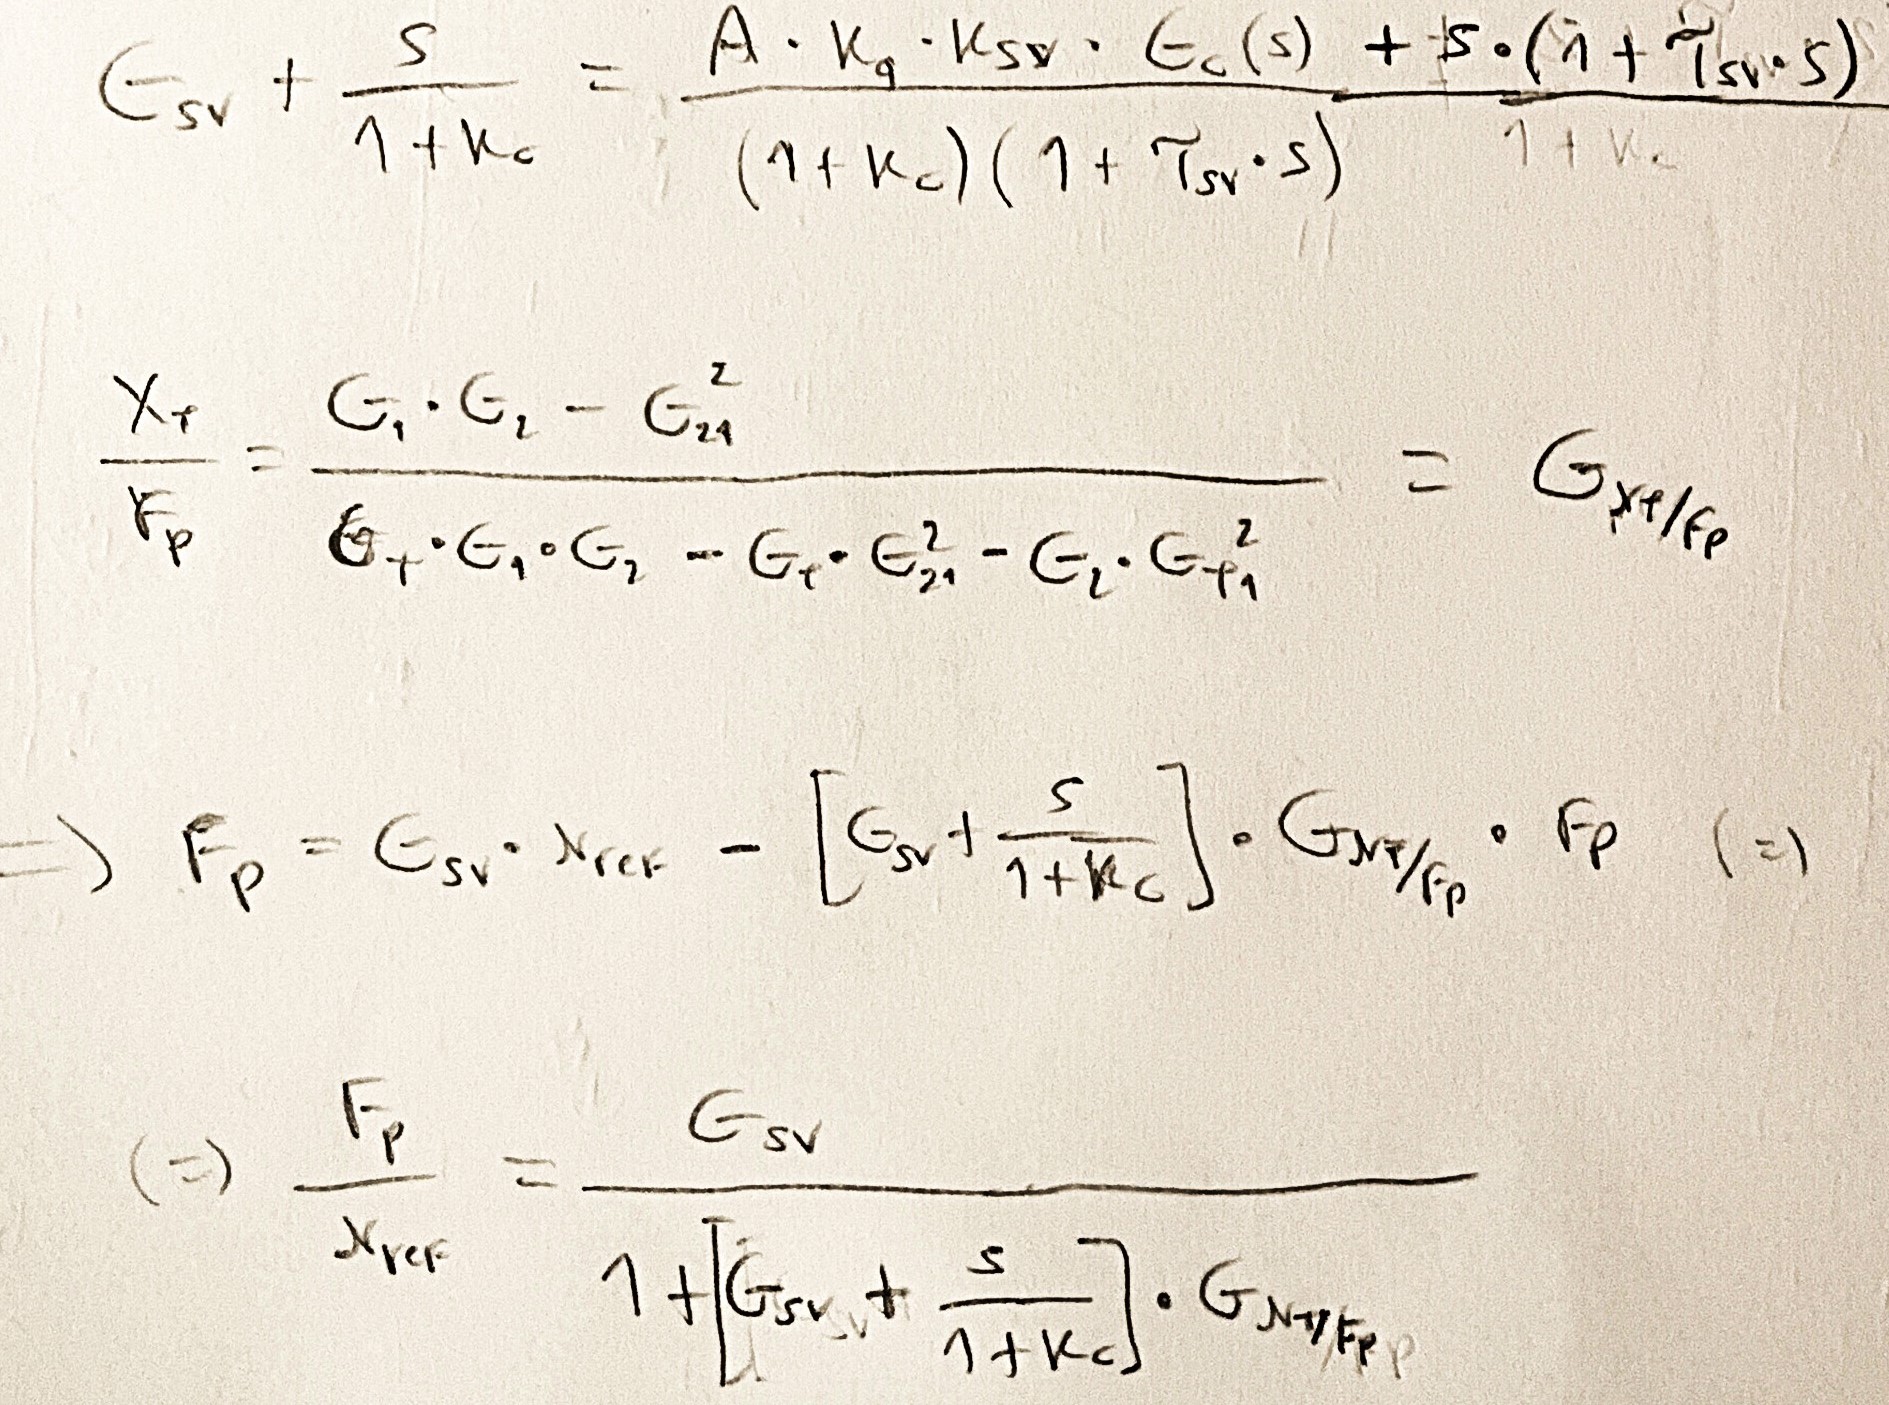 G_sv + s/(1+K_c) = (A · K_q · K_sv · G_c(s) + s·(1 + τ_sv·s))/((1+K_c)(1+τ_sv·s))
X_t/F_p = (G_1·G_2 − G_21^2)/(G_t·G_1·G_2 − G_t·G_21^2 − G_2·G_t1^2) = G_xt/Fp
=) F_p = G_sv·x_ref − [G_sv + s/(1+K_c)]·G_xt/Fp · F_p (=)
(=) F_p/x_ref = G_sv/(1+[G_sv + s/(1+K_c)]·G_xt/Fp)